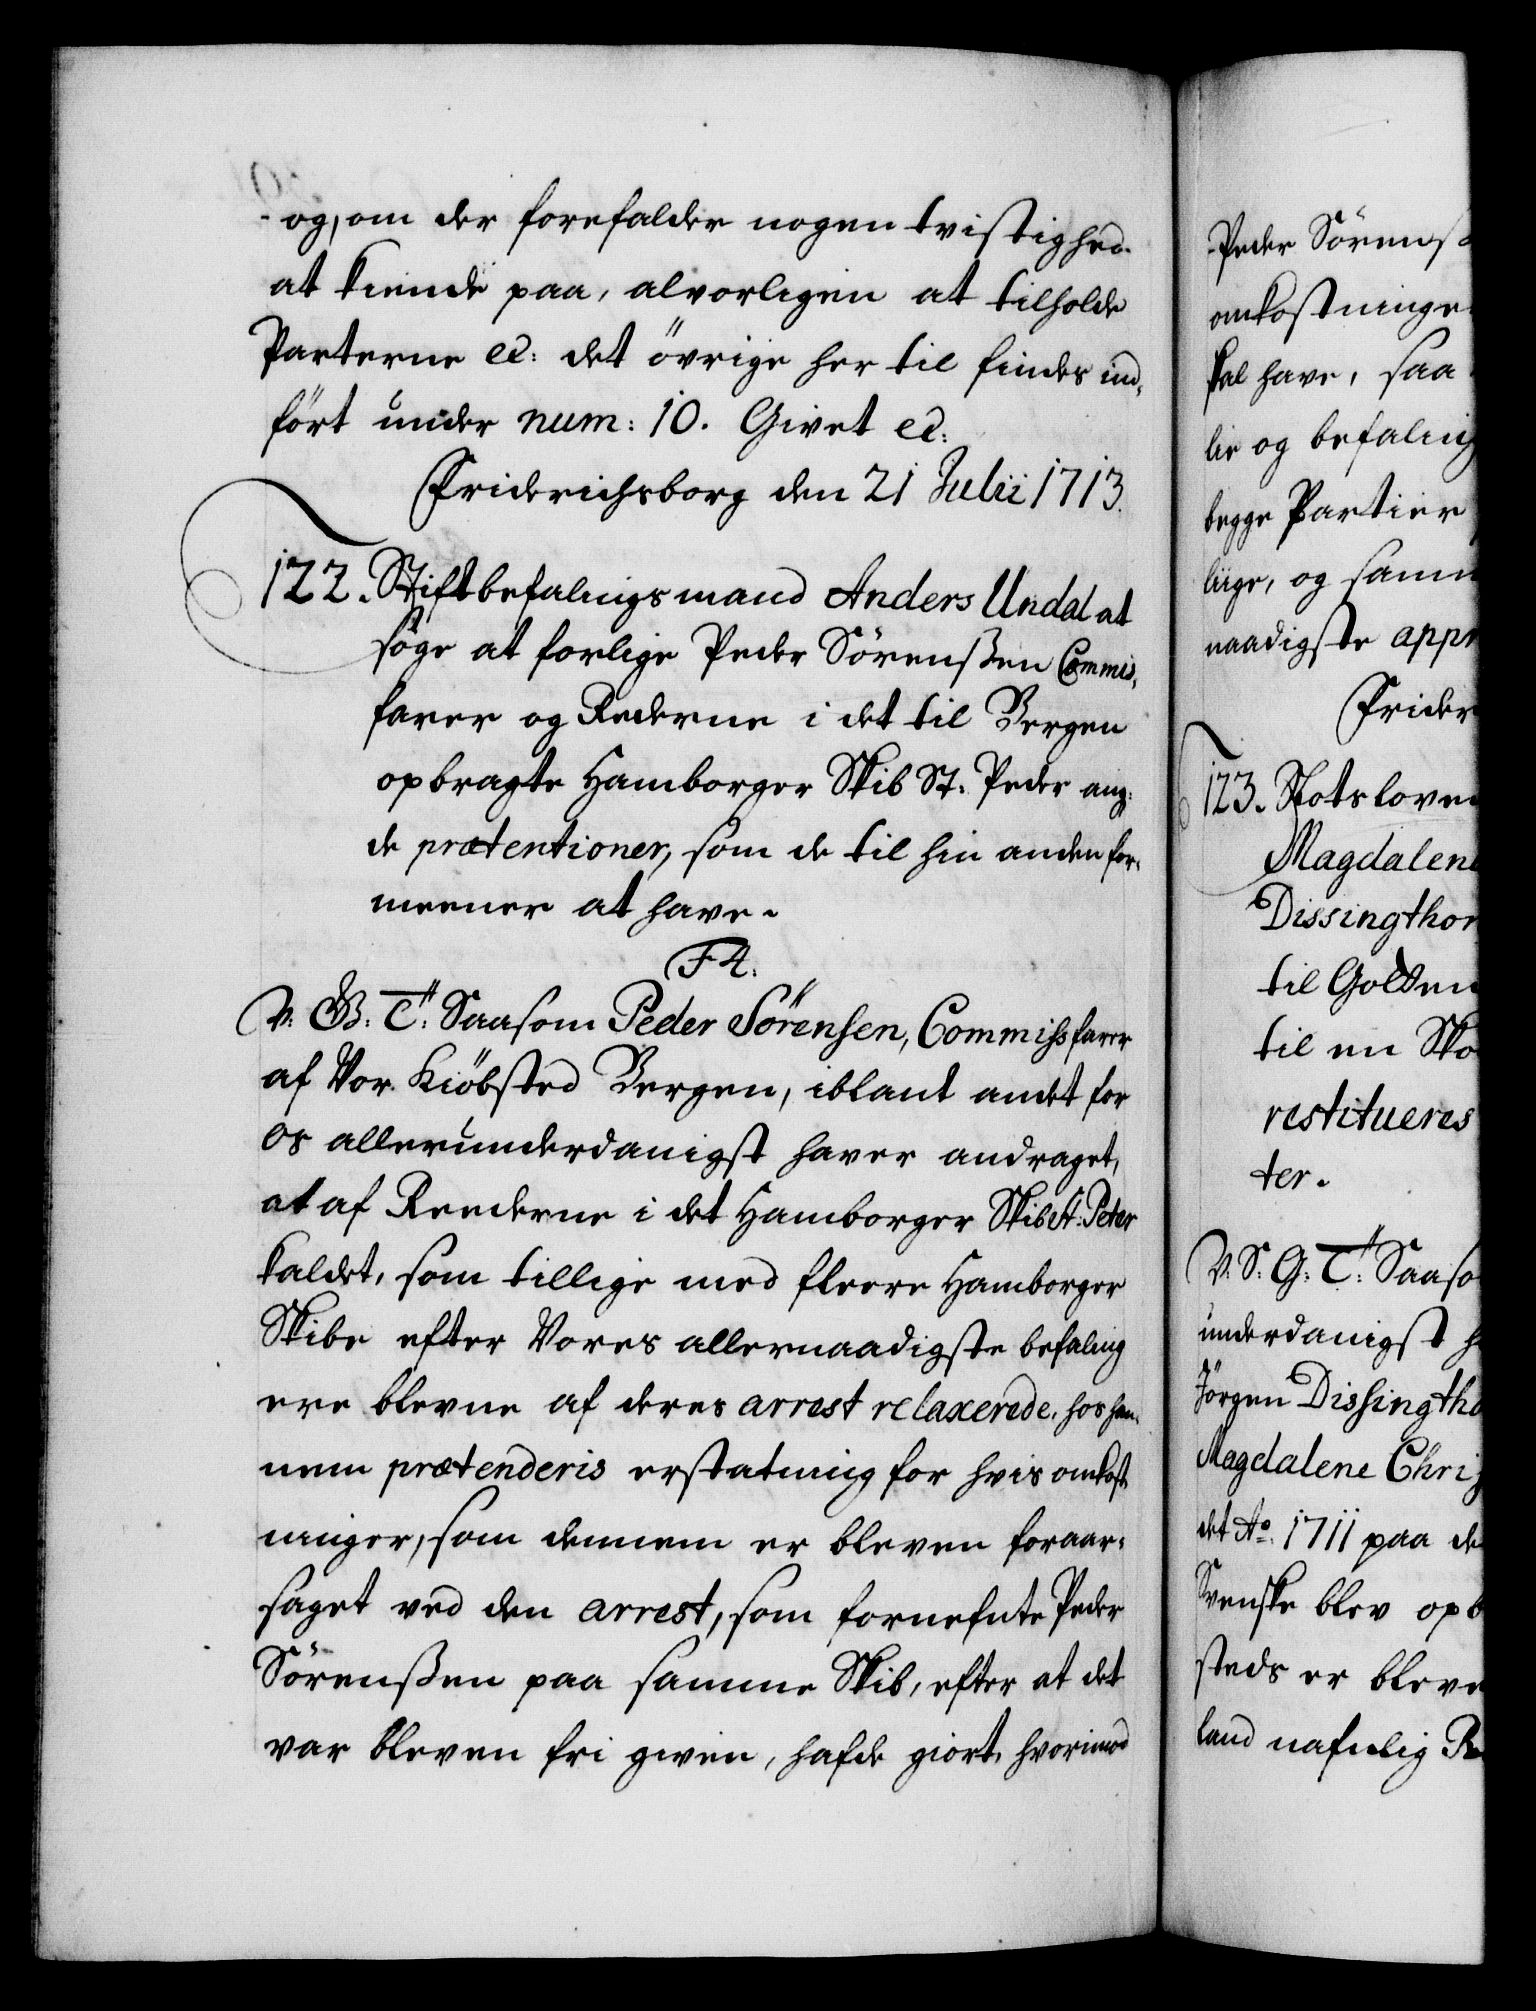 og, om der forefalder nogen tvistighed
at kiende paa, alvorligen at tilholde
Parterne etc: det övrige her til findes ind-
fört under num: 10. Givet etc:
Friderichsborg den 21 Julii 1713.
122. Stiftbefalingsmand Anders Undal at
söge at forlige Peder Sörenßen Commis-
farer og Rederne i det til Bergen
opbragte Hamborger Skib St. Peder ang:
de prætentioner, som de til hin anden for-
meener at have.
F4.
V: G: T: Saasom Peder Sörensen, Commissfarer
af Vor Kiöbsted Bergen, iblant andet for
os allerunderdanigst haver andraget,
at af Reederne i det Hamborger Skib St: Peter
kaldet, som tillige med fleere Hamborger
Skibe efter Vores allernaadigste befaling
ere blevne af deres arrest relaxerede, hos han-
nem prætenderis erstatning for hvis omkost-
ninger, som dennem er bleven foraar-
saget ved den arrest, som fornefnte Peder
Sörenßen paa samme Skib, efter at det
var bleven fri given, hafde giort, hvorimod
Peder Sörenß
omkostninge
skal have, saa
lie og befaling
begge Partier
liige, og samm
naadigste appr
Frider
123. Slotsloven
Magdalene
Dissingthor
til Golden
til en Sko
restitueres
ter.
V: S: G: T: Saaso
underdanigst h
Jörgen Dissingtho
Magdalene Chri
det Ao. 1711 paa de
Svenske blev opb
steds er bleve
land nafnlig R